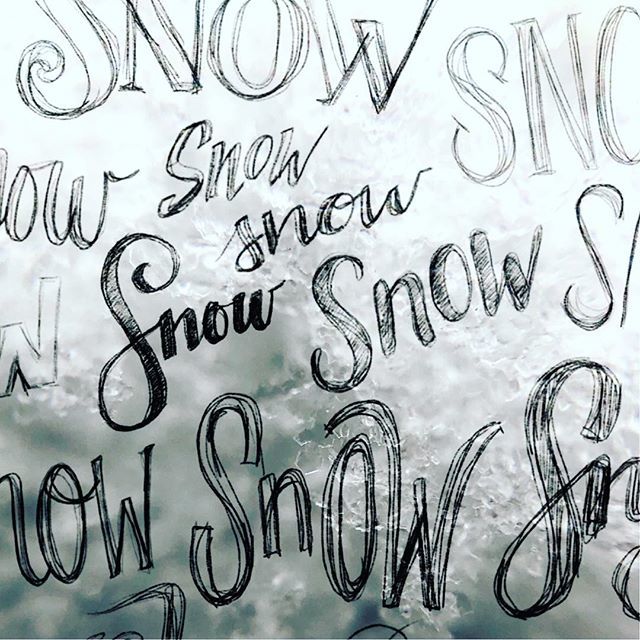 SNOW SNO
now Snow
snow
Snow Snow S
W
now Snow Sn